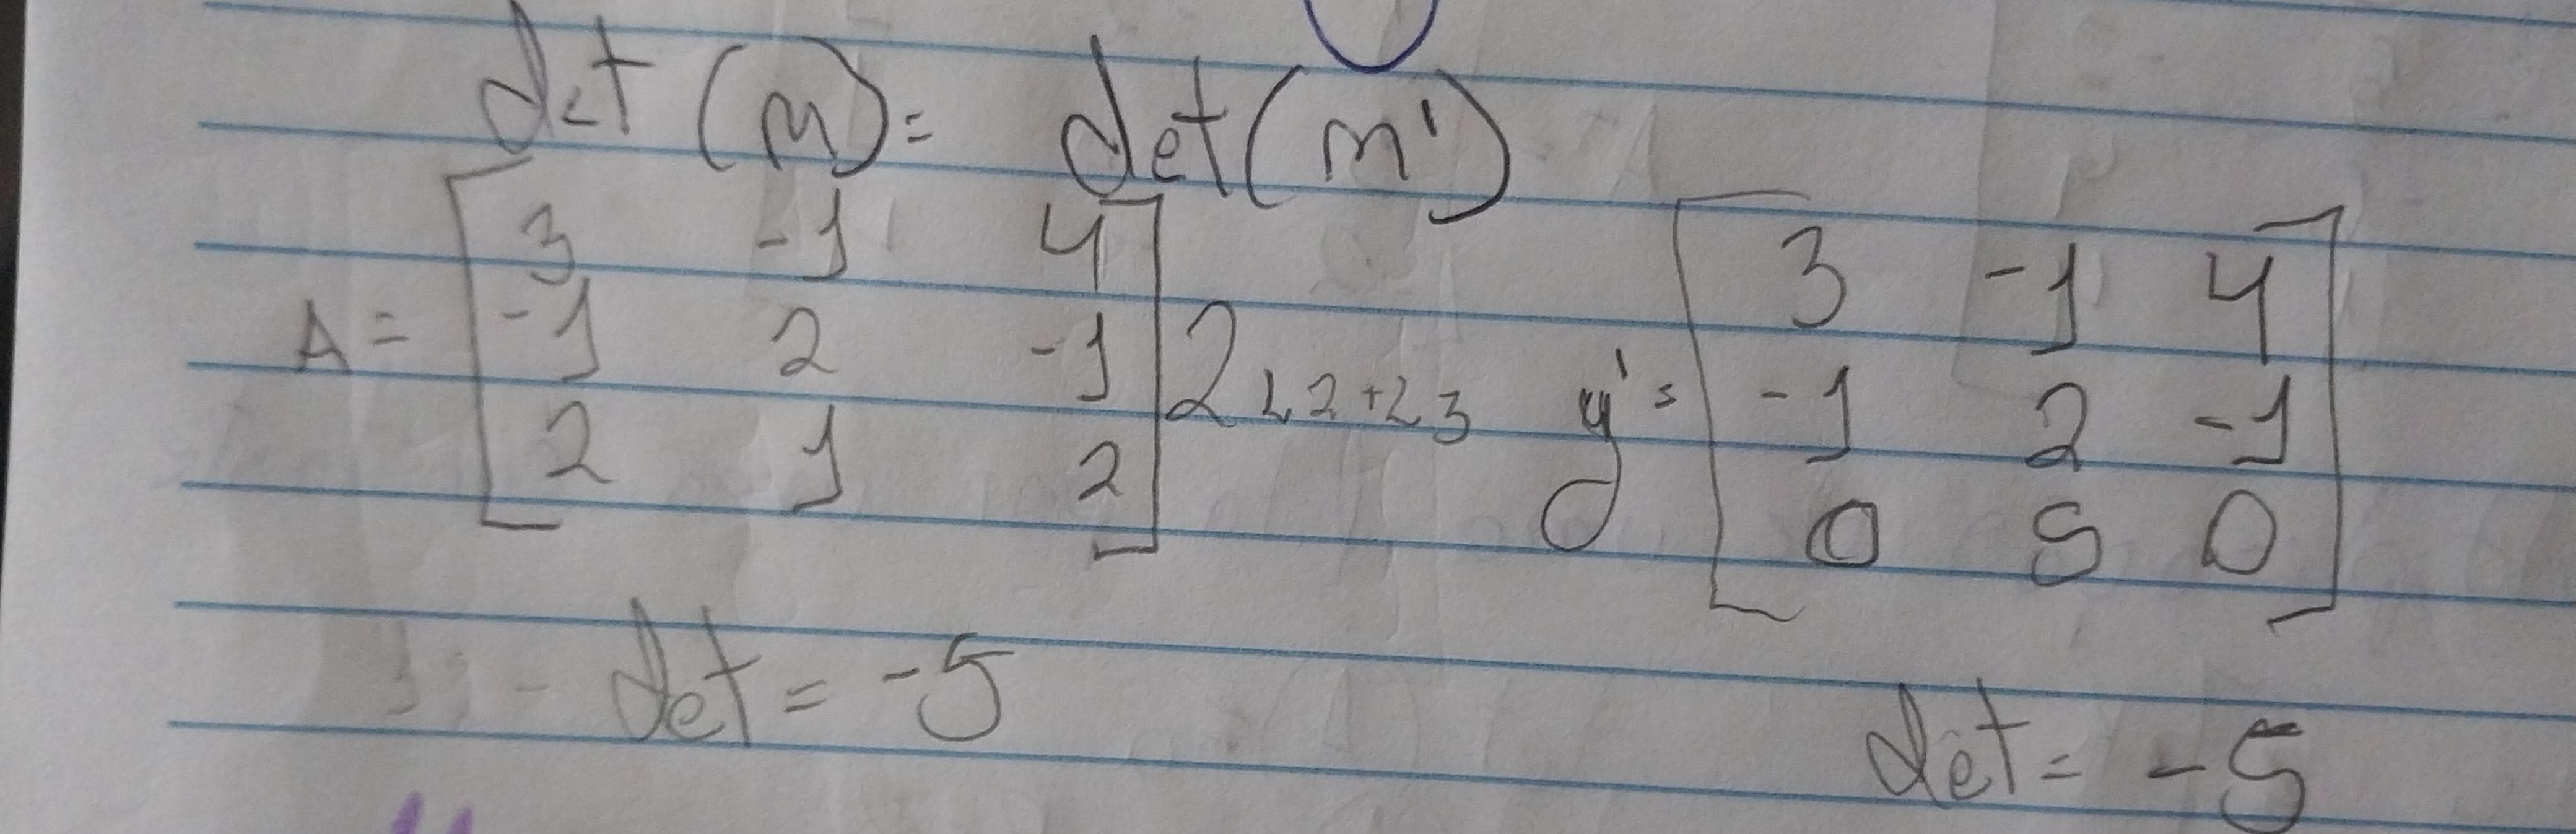 det (m) = det (m')
A = [ 3 -1 4 ] [ 3 -1 4 ]
[ -1 2 -1 ] 2L2+L3 y' = [ -1 2 -1 ]
[ 2 1 2 ] [ 0 5 0 ]
det = -5 det = -5